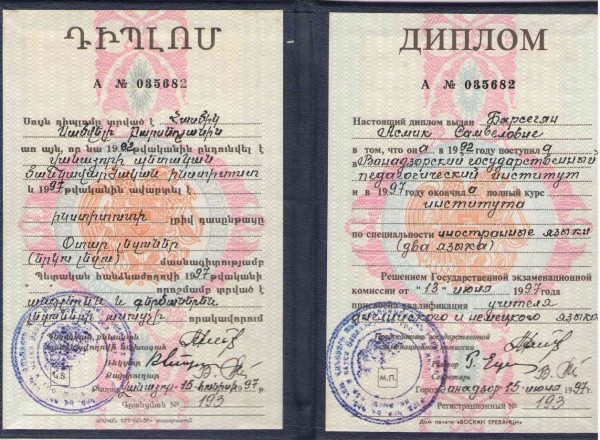 ԴԻՊԼՈՄ
А № 035682
Սույն դիպլոմը տրված է Հասմիկ
Սամվելի Բարսեղյանին
առ այն, որ նա 1992 թվականին ընդունվել է
Վանաձորի պետական
մանկավարժական ինստիտուտ
և 1997 թվականին ավարտել է
ինստիտուտի լրիվ դասընթացը
Օտար լեզուներ
(երկու լեզու) մասնագիտությամբ
Պետական հանձնաժողովի 1997 թվականի
որոշմամբ տրված է
անգլերեն և գերմաներեն
լեզուների ուսուցչի որակավորում
Կ.Տ.
Քաղաք Վանաձոր 15 հունիսի 97թ.
Գրանցման № 193
ДИПЛОМ
А № 035682
Настоящий диплом выдан Барсегян
Асмик Самвеловне
в том, что она в 1992 году поступила
в Ванадзорский государственный
педагогический институт
и в 1997 году окончила полный курс
института
по специальности иностранные языки
(два языка)
Решением Государственной экзаменационной
комиссии от "13" июня 1997 года
присвоена квалификация учителя
английского и немецкого языков
Председатель государственной
экзаменационной комиссии
Ректор
Секретарь
М.П.
Город Ванадзор 15 июня 1997г.
Регистрационный № 193
Дом печати «ВОСКАН ЕРЕВАНЦИ»